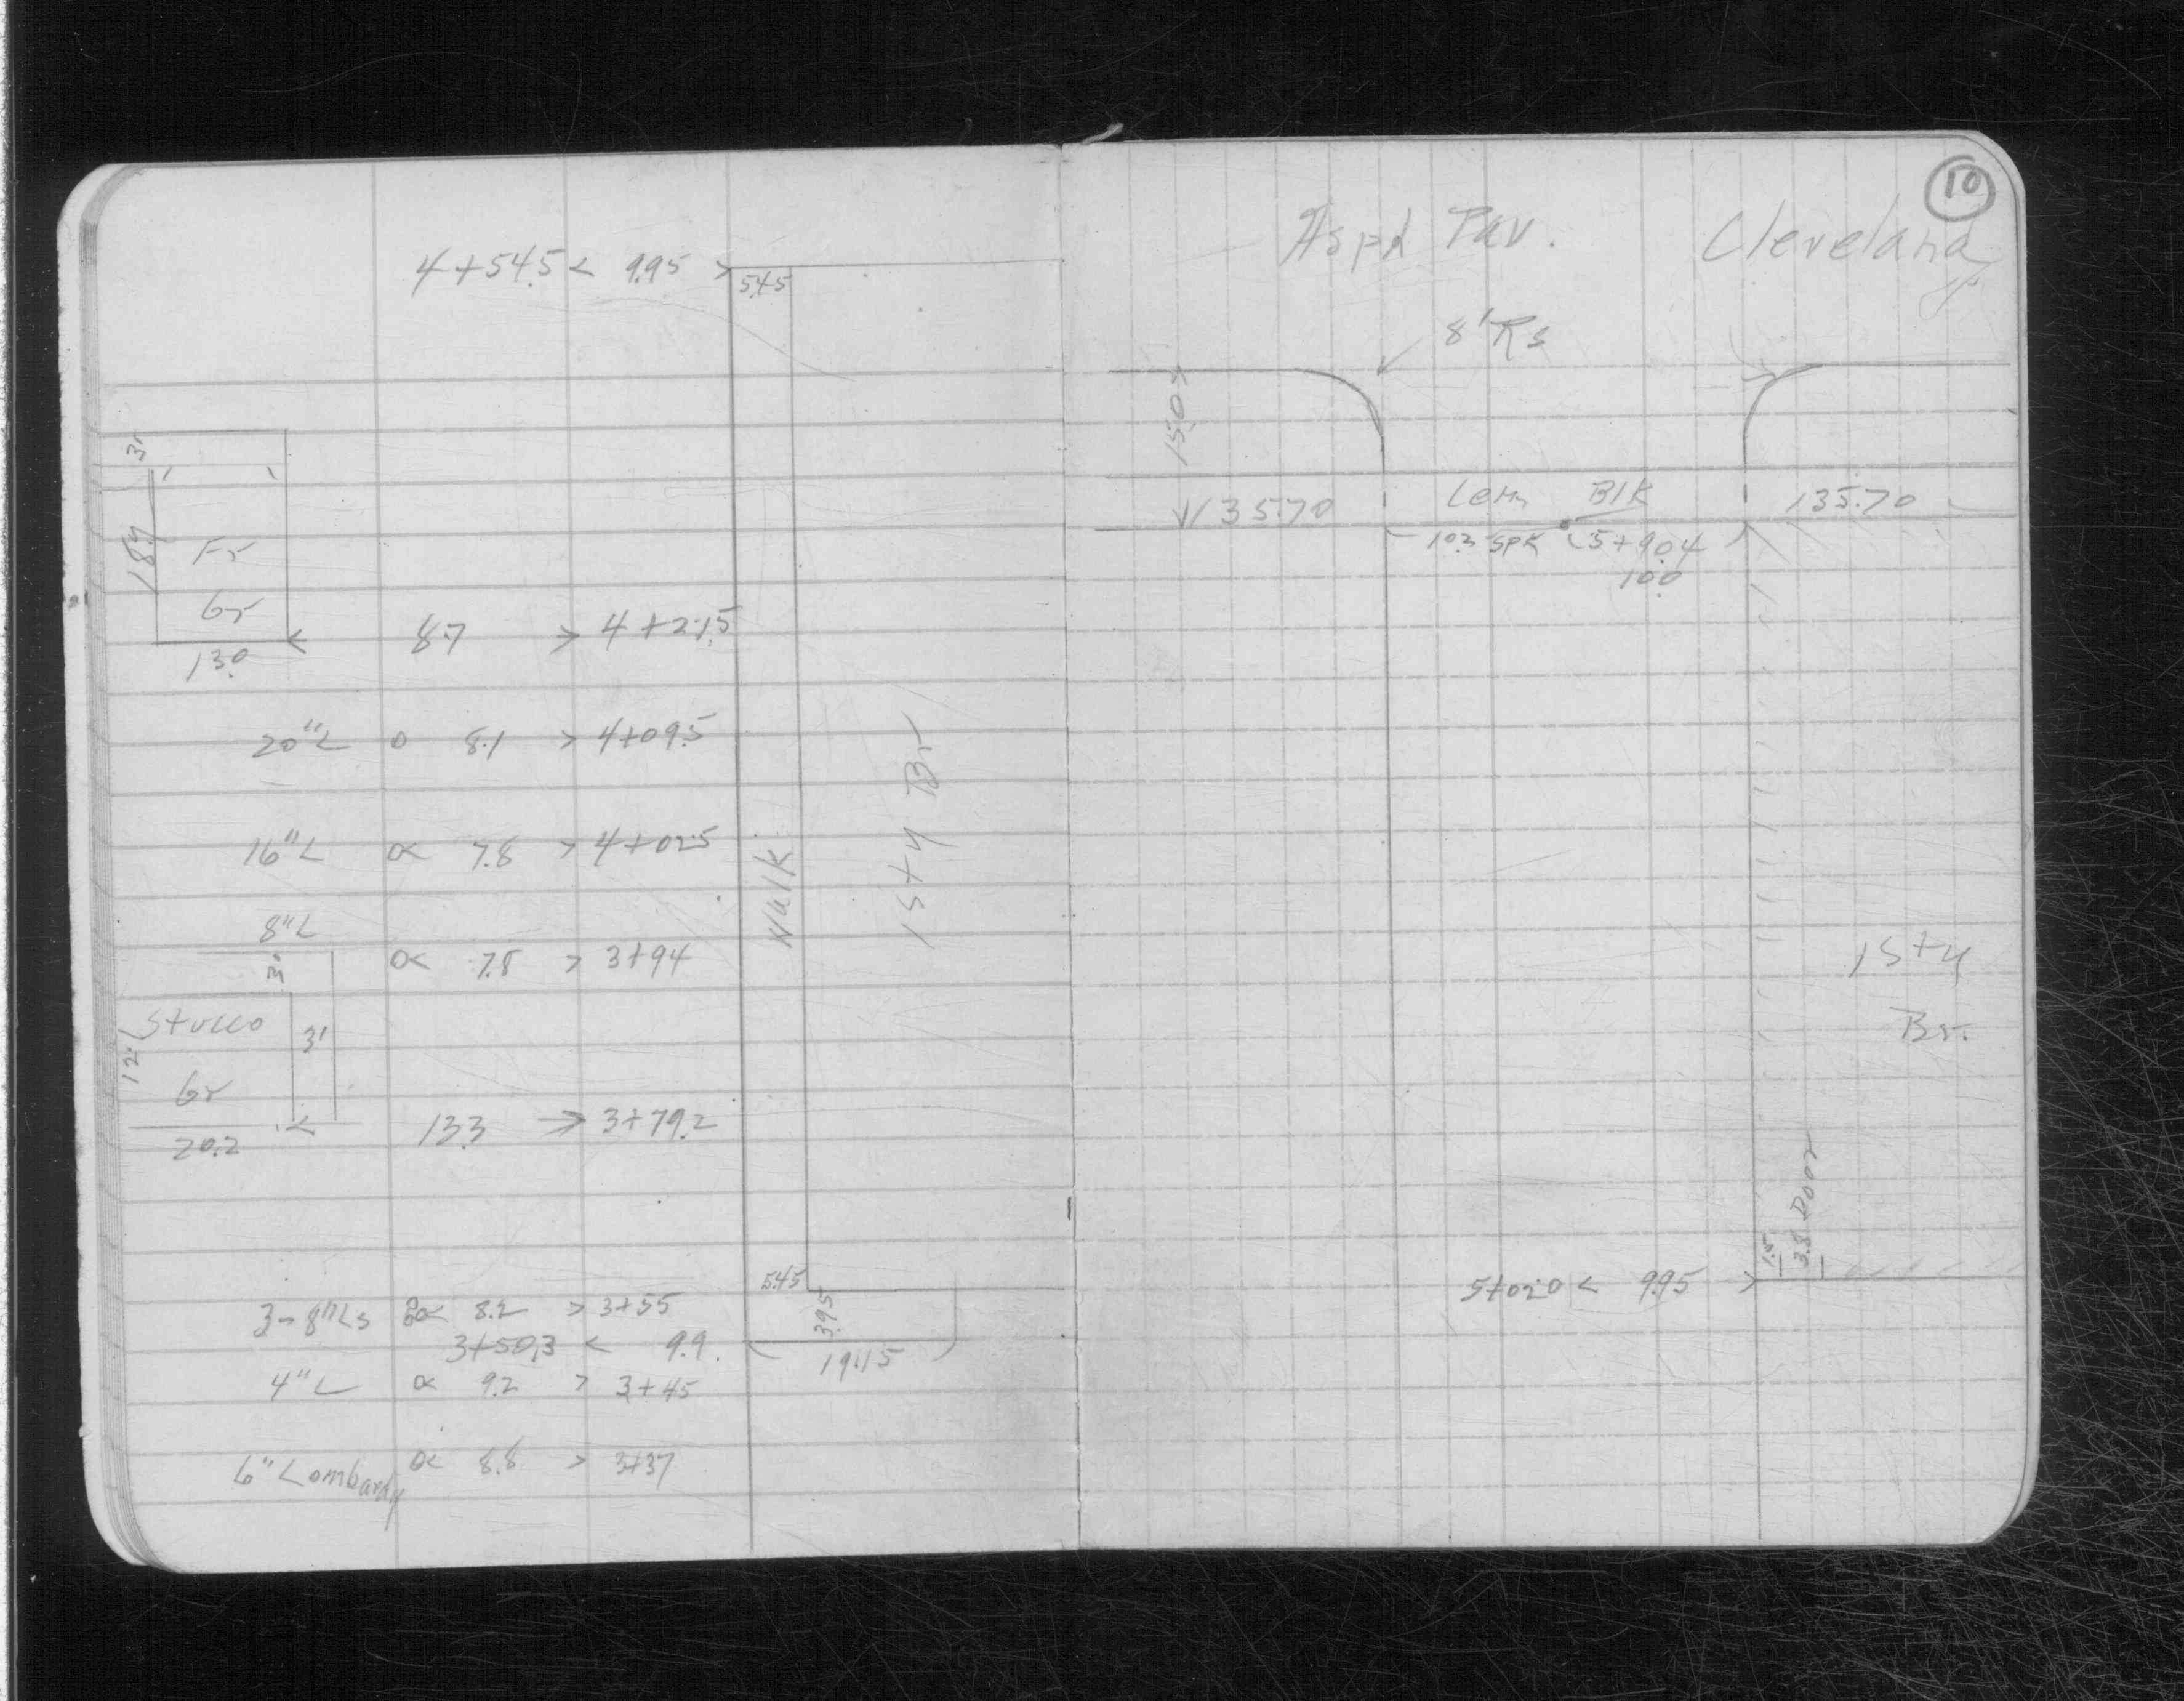 4+54.5 < 9.95 >
5.45
3r
18.7
Fr
Gr
13.0
8.7 > 4+21.5
20"L o 8.1 > 4+09.5
16"L α 7.8 > 4+02.5
8"L
α 7.8 > 3+94
3.0
Stucco
3'
12.1
Gr
20.2
13.3 > 3+79.2
Walk
1 Sty Br
5.45
3.95
19.15
3-8"Ls α 8.2 > 3+55
3+50.3 < 9.9
4"L α 9.2 > 3+45
6" Lombardy α 8.8 > 3+37
10
Aspd Pav. Cleveland
8'Rs
15.0
135.70
Cem Blk
135.70
10.3 Spk 5+90.4
10.0
1 Sty
Br.
3.8 Door
1.5
5+02.0 < 9.95 >